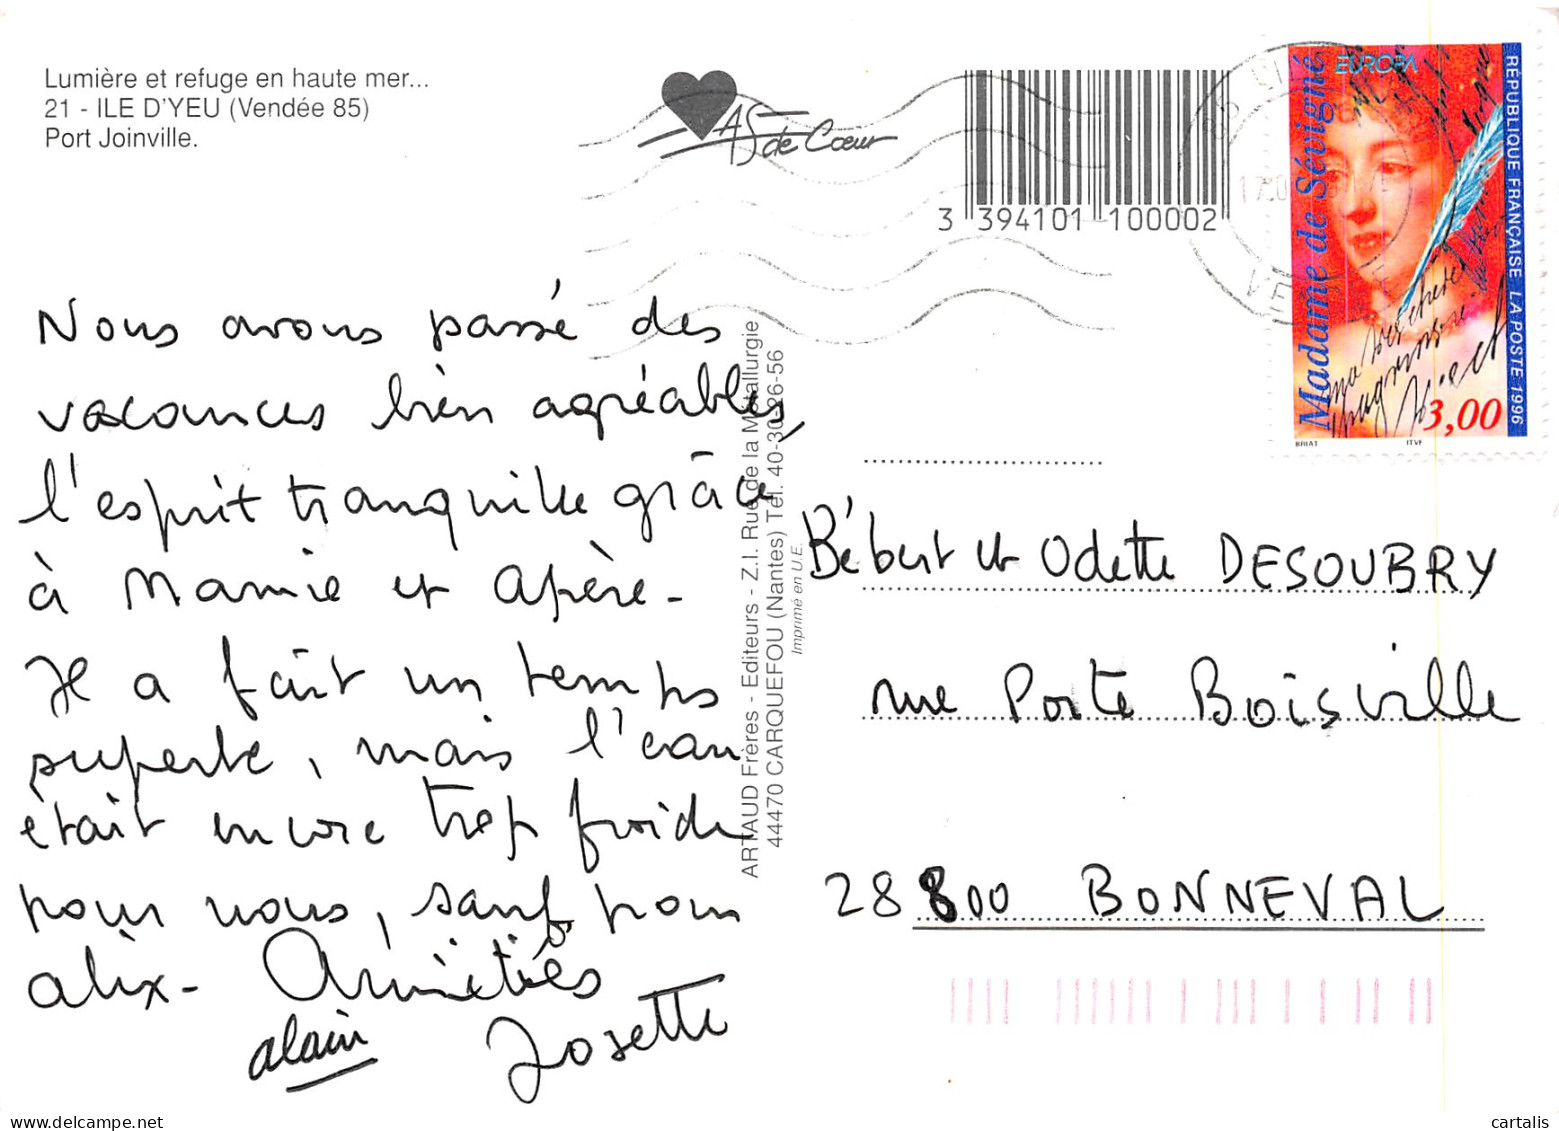 Lumière et refuge en haute mer...
21 - ILE D'YEU (Vendée 85)
Port Joinville.
AS de Cœur
3 394101 100002
Madame de Sévigné
EUROPA
RÉPUBLIQUE FRANÇAISE LA POSTE 1996
3,00
BRIAT
ITVF
Nous avons passé des
vacances bien agréables,
l'esprit tranquille grâce
à Mamie et Apère-
Il a fait un temps
superbe, mais l'eau
était encore trop froide
pour nous, sauf pour
alix- Amitiés
alain Josette
ARTAUD Frères - Editeurs - Z.I. Rue de la Métallurgie
44470 CARQUEFOU (Nantes) Tél. 40-30-26-56
Imprimé en U.E.
Bébert et Odette DESOUBRY
rue Porte Boisville
28800 BONNEVAL
cartalis